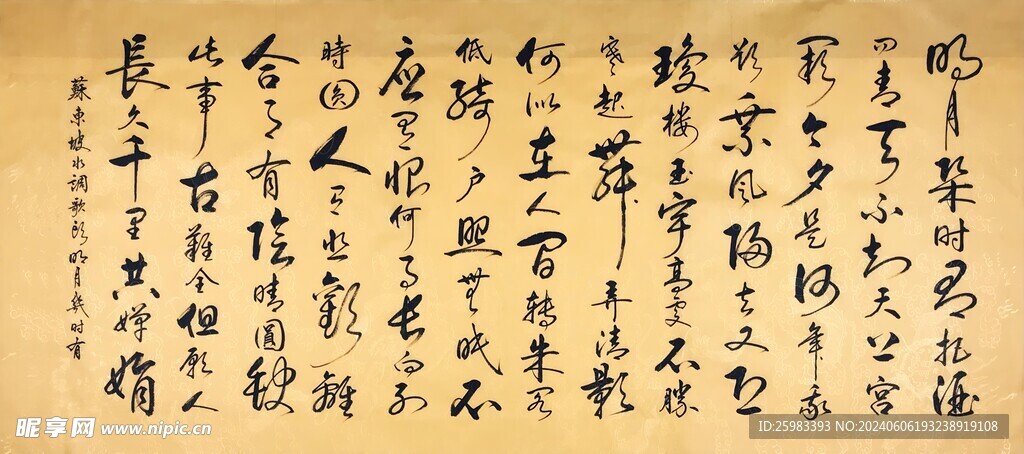 明月幾时有把酒
问青天不知天上宫
阙今夕是何年我
欲乘风归去又恐
瓊楼玉宇高處不勝
寒起舞弄清影
何似在人间轉朱阁
低绮户照無眠不
应有恨何事长向别
時圆人有悲歡離
合月有陰晴圓缺
此事古難全但願人
長久千里共嬋娟
蘇東坡水調歌頭明月幾时有
昵享网 www.nipic.cn
ID:25983393 NO:20240606193238919108